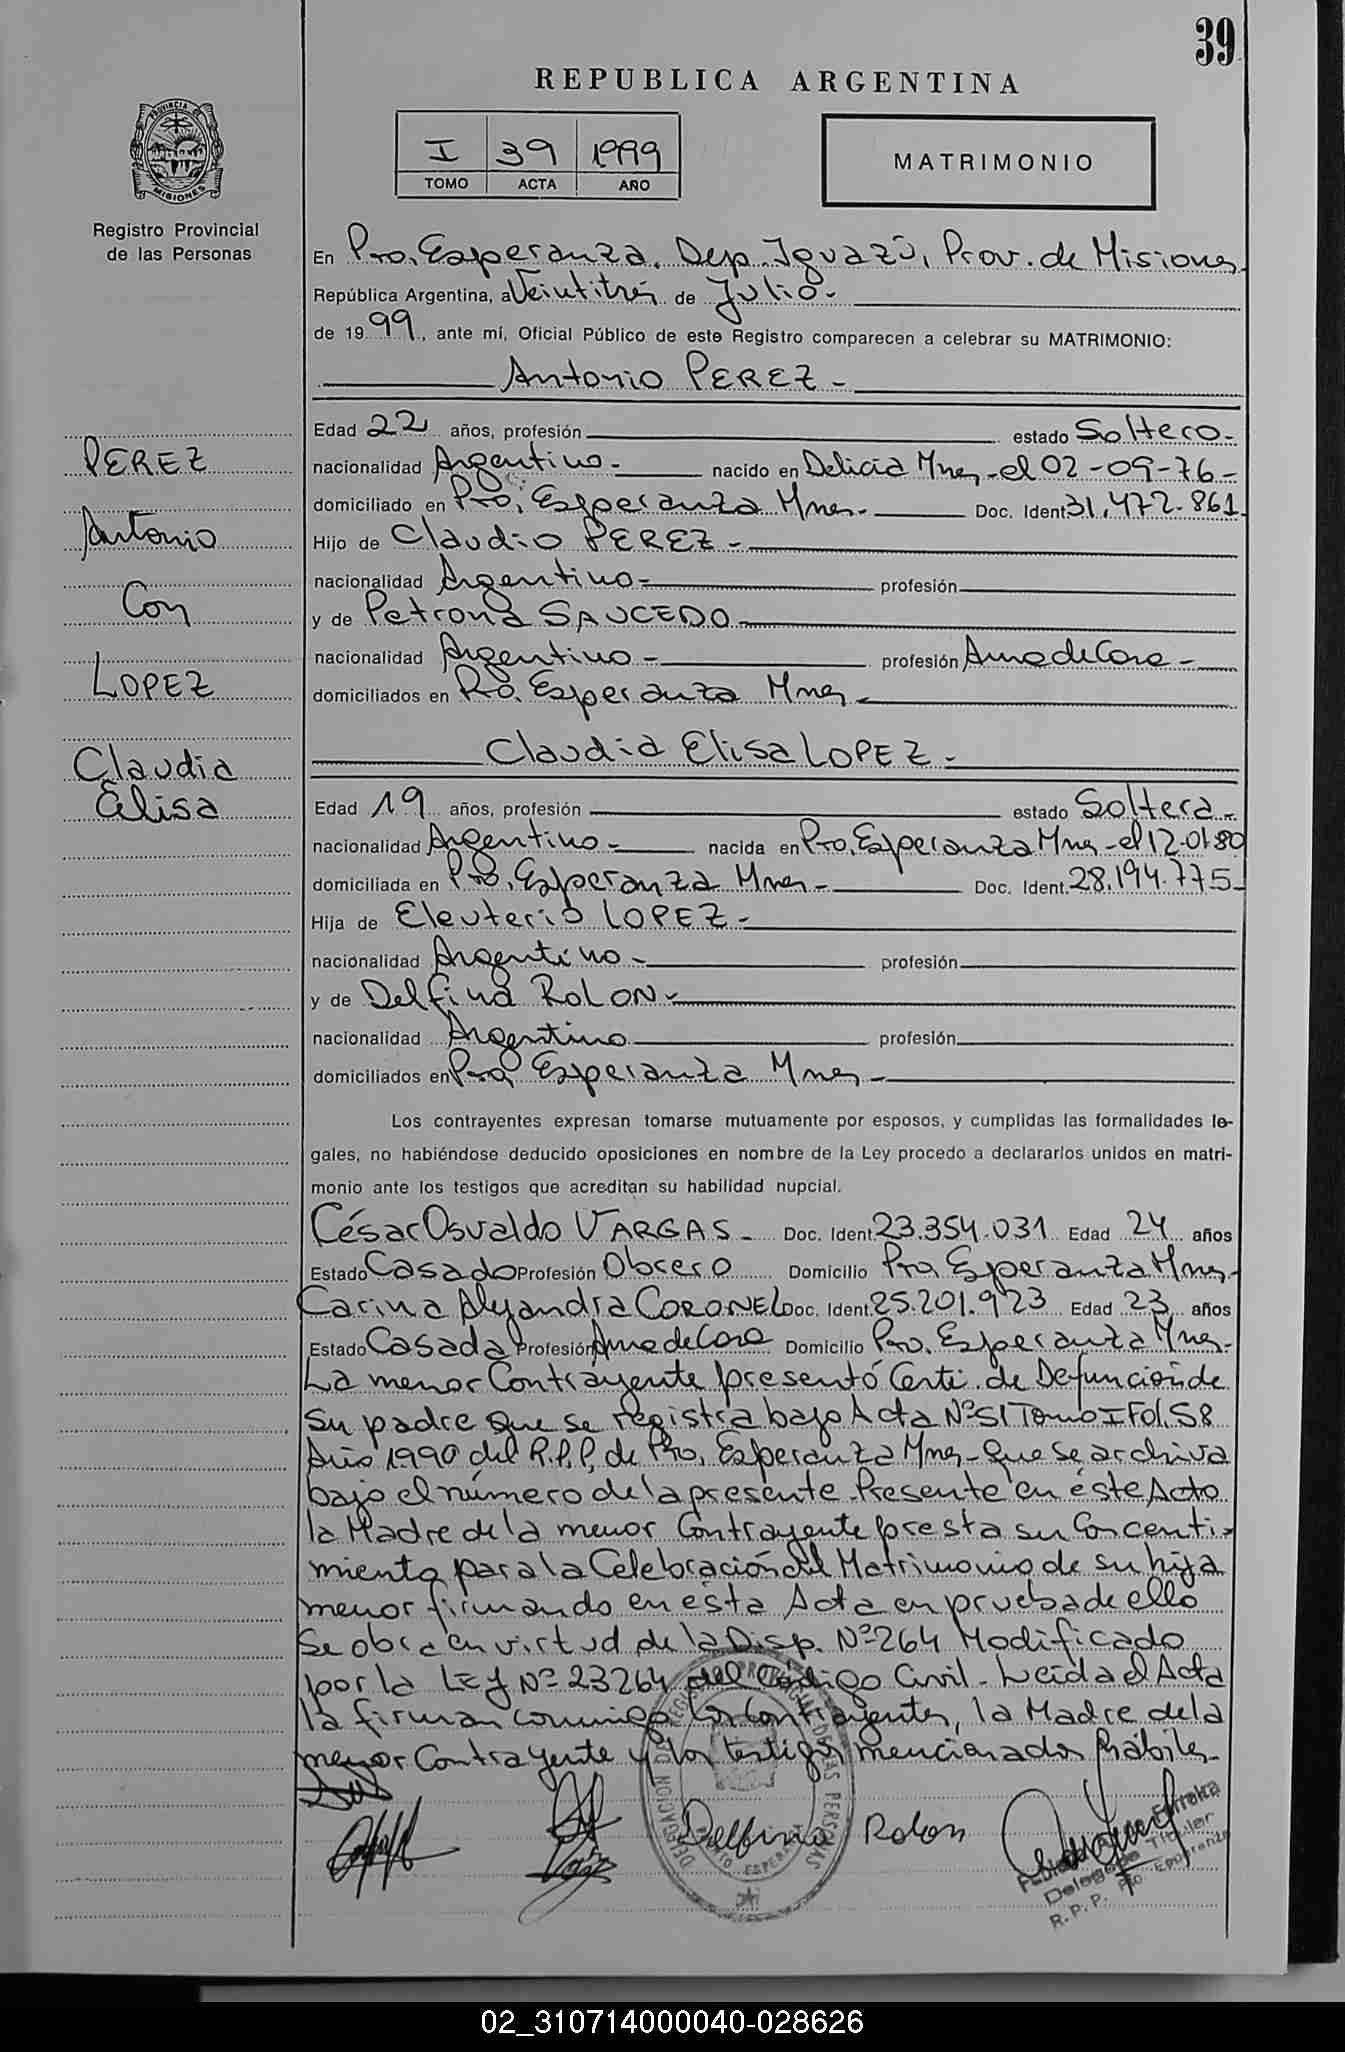 39
REPUBLICA ARGENTINA
I 39 1999
TOMO ACTA AÑO
MATRIMONIO
PROVINCIA DE
MISIONES
Registro Provincial
de las Personas
En Pto. Esperanza. Dep. Iguazú, Prov. de Misiones
República Argentina, a Veintitrés de Julio.-
de 1999, ante mí, Oficial Público de este Registro comparecen a celebrar su MATRIMONIO:
Antonio PEREZ -
Edad 22 años, profesión estado Soltero-
nacionalidad Argentino- nacido en Delicia Mnes-el 02-09-76-
domiciliado en Pto. Esperanza Mnes- Doc. Ident 31.472.861
Hijo de Claudio PEREZ-
nacionalidad Argentino- profesión
y de Petrona SAUCEDO
nacionalidad Argentino- profesión Ama de Casa-
domiciliados en Pto. Esperanza Mnes
PEREZ
Antonio
Con
LOPEZ
Claudia
Elisa
Claudia Elisa LOPEZ-
Edad 19 años, profesión estado Soltera-
nacionalidad Argentino- nacida en Pto. Esperanza Mnes-el 12-01-80
domiciliada en Pto. Esperanza Mnes- Doc. Ident. 28.194.775-
Hija de Eleuterio LOPEZ-
nacionalidad Argentino- profesión
y de Delfina ROLON-
nacionalidad Argentino profesión
domiciliados en Pto. Esperanza Mnes-
Los contrayentes expresan tomarse mutuamente por esposos, y cumplidas las formalidades le-
gales, no habiéndose deducido oposiciones en nombre de la Ley procedo a declararlos unidos en matri-
monio ante los testigos que acreditan su habilidad nupcial.
César Osvaldo VARGAS- Doc. Ident. 23.354.031 Edad 24 años
Estado Casado Profesión Obrero Domicilio Pto. Esperanza Mnes-
Carina Alejandra CORONEL Doc. Ident. 25.201.923 Edad 23 años
Estado Casada Profesión Ama de Casa Domicilio Pto. Esperanza Mnes-
La menor Contrayente presentó Certi. de Defunción de
su padre que se registra bajo Acta Nº 51 Tomo I Fol. 58
Año 1990 del R.P.P. de Pto. Esperanza Mnes- Que se archiva
bajo el número de la presente. Presente en éste Acto
la Madre de la menor Contrayente presta su Concenti-
miento para la Celebración del Matrimonio de su hija
menor firmando en ésta Acta en prueba de ello
Se obra en virtud de la Disp. Nº 264 Modificado
por la LEY Nº 23264 del Código Civil- Leida el Acta
la firman conmigo los Contrayentes, la Madre de la
menor Contrayente y los testigos mencionados hábiles-
Delfina Rolon
DELEGACION DEL REGISTRO PROVINCIAL DE LAS PERSONAS
PUERTO ESPERANZA
Delegado Titular
R. P. P. Pto. Esperanza
02_310714000040-028626